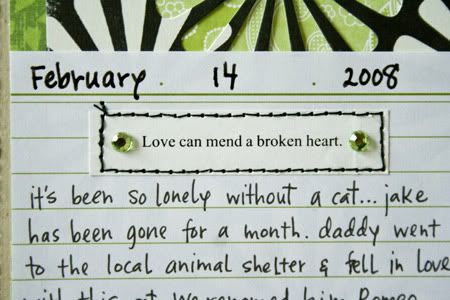 February . 14 . 2008
Love can mend a broken heart.
it's been so lonely without a cat... jake
has been gone for a month. daddy went
to the local animal shelter & fell in love
with this cat. We renamed him Romeo